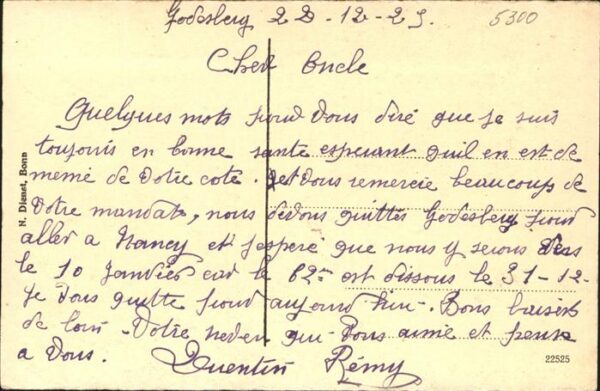 Godesberg 22-12-25.
5300
Cher Oncle
Quelques mots pour vous dire que je suis
toujours en bonne santé esperant qu'il en est de
meme de votre coté. Je vous remercie beaucoup de
votre mandat, nous devons quitter Godesberg pour
aller a Nancy et j'espere que nous y serons vers
le 10 Janvier car le 62me est dissous le 31-12-
Je vous quitte pour aujourd'hui. Bons baisers
de loin. Votre neveu qui vous aime et pense
a vous. Quentin Rémy
N. Dienet, Bonn
22525